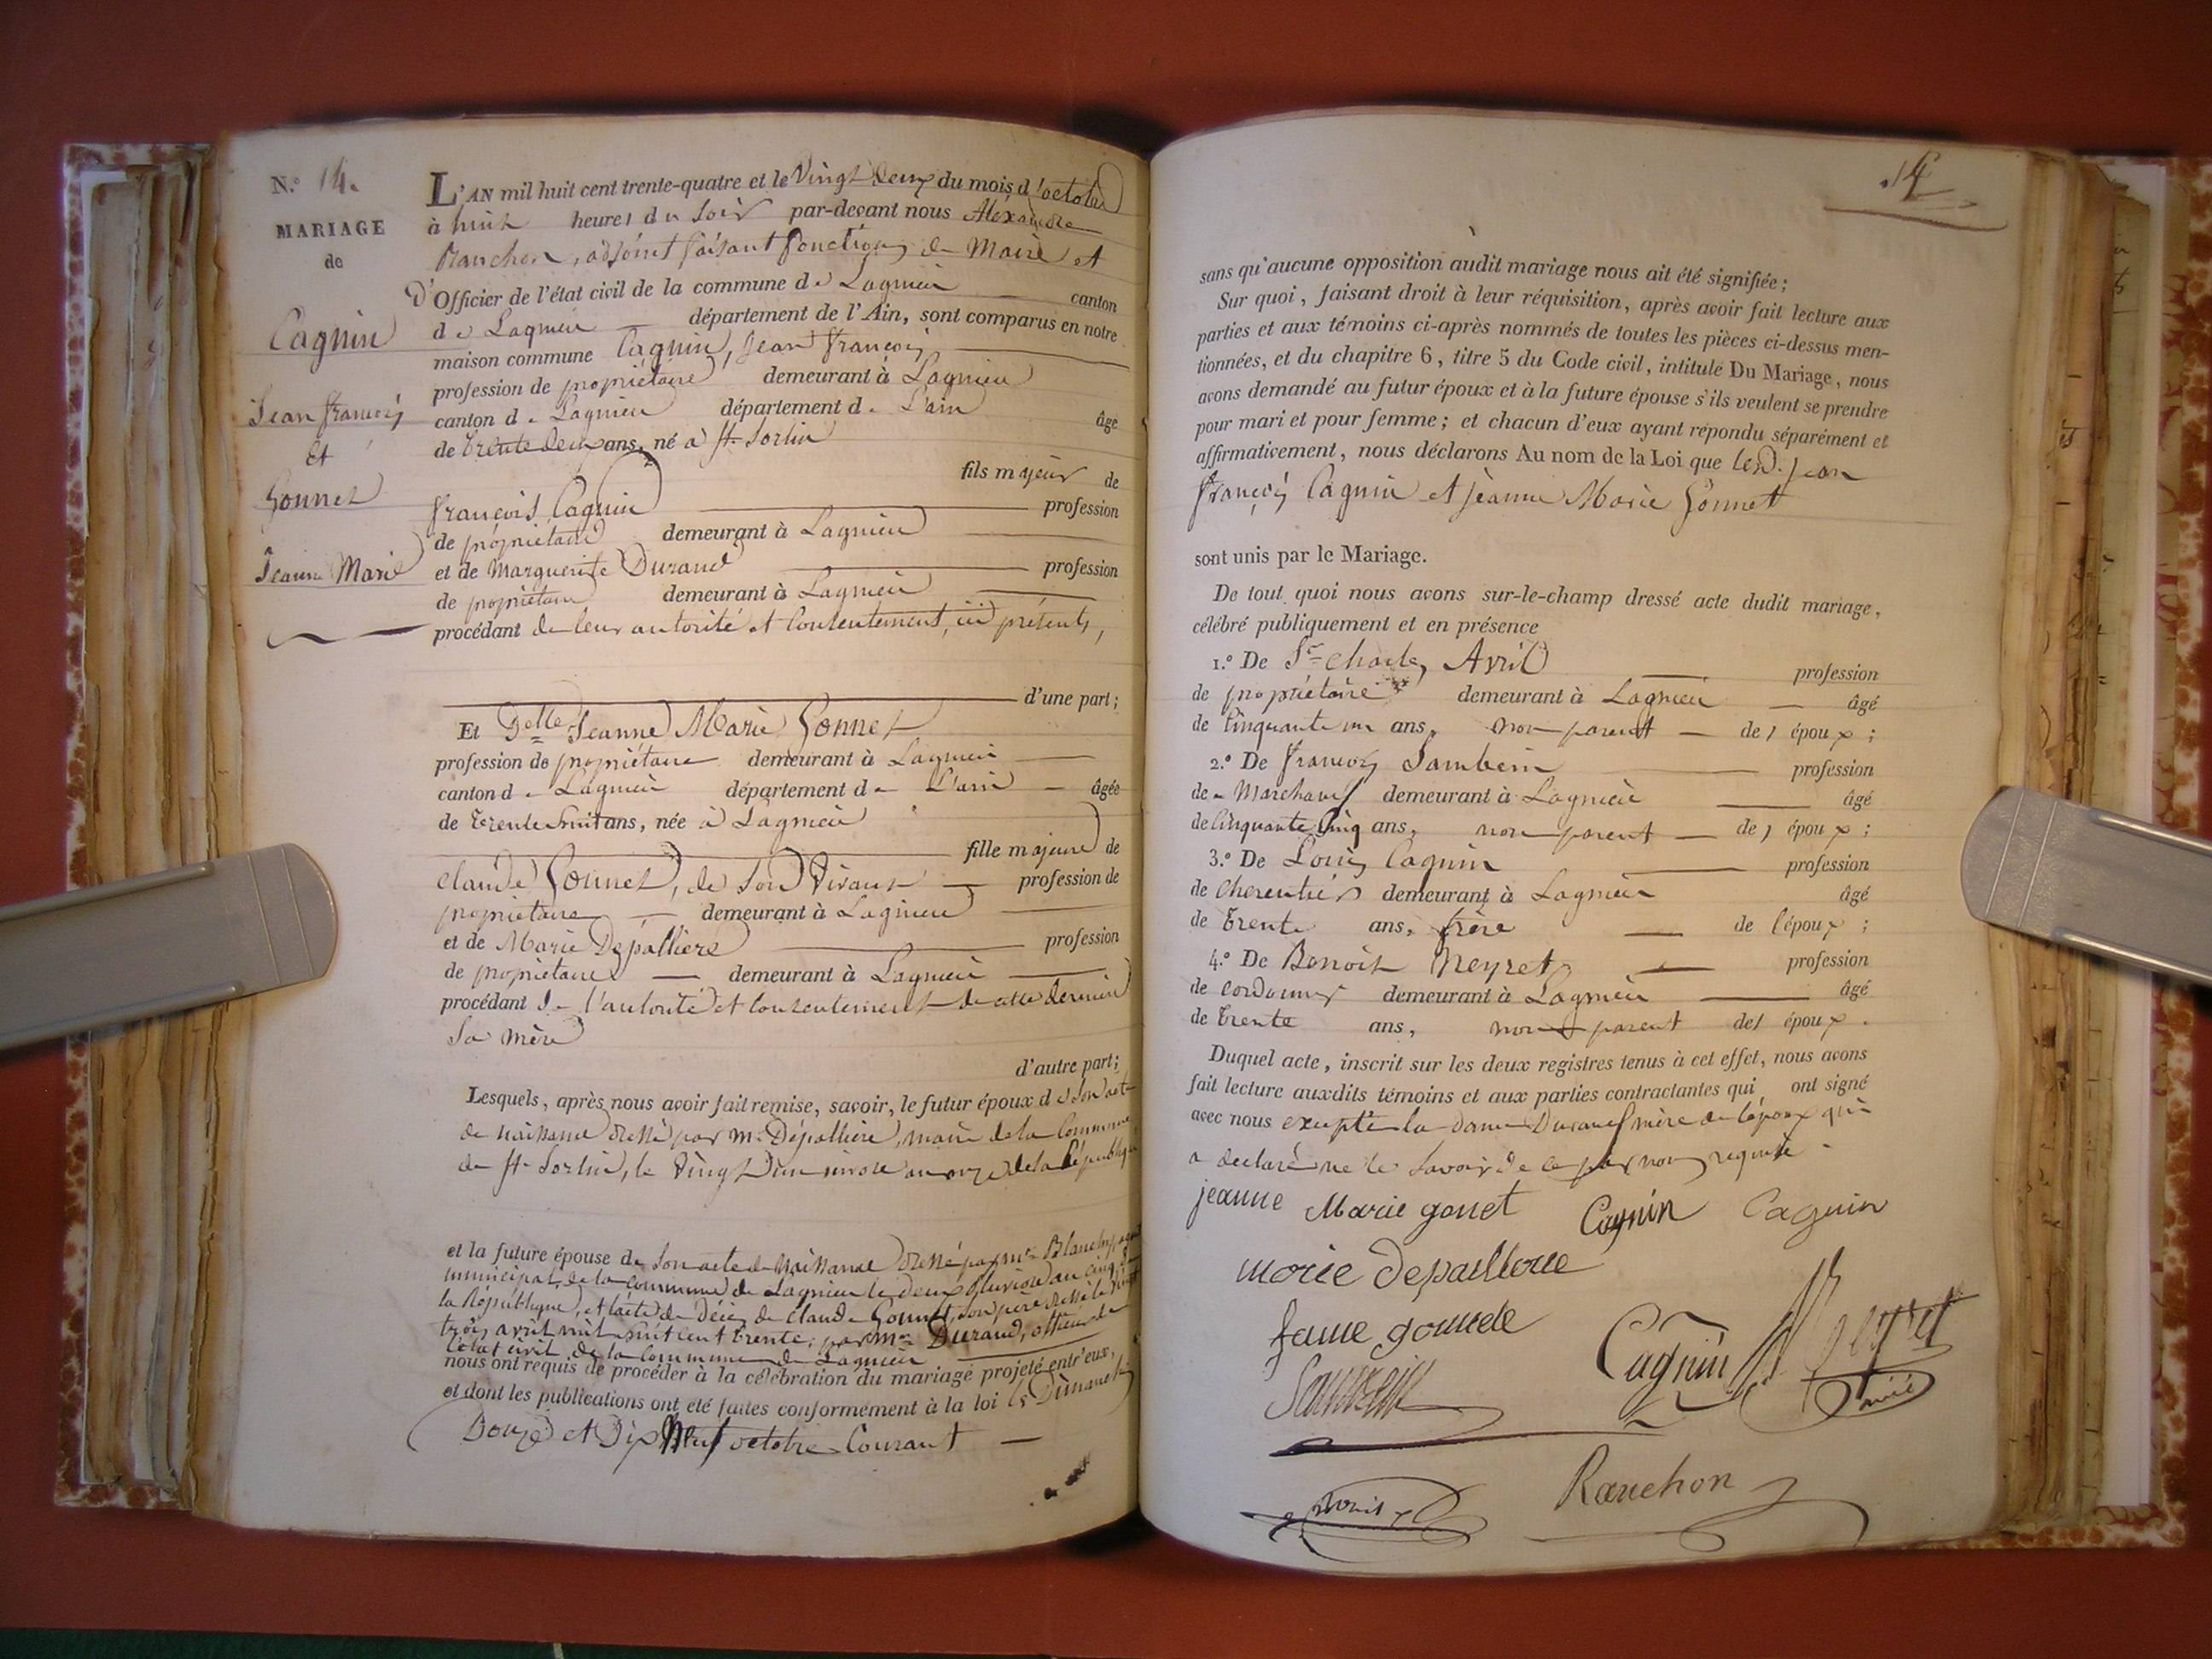 N.º 14.
MARIAGE
de
Cagnin
Jean françois
et
Gonnet
Jeanne Marie
L'AN mil huit cent trente-quatre et le Vingt deux du mois d'octobre
à huit heures du Soir par-devant nous Aléxandre
Ranchon, adjoint faisant fonctions de Maire et
D'Officier de l'état civil de la commune de Lagnieu canton
de Lagnieu département de l'Ain, sont comparus en notre
maison commune Cagnin, Jean françois
profession de propriétaire demeurant à Lagnieu
canton de Lagnieu département de L'ain âgé
de trente deux ans, né à St. Sorlin
fils majeur de
françois Cagnin profession
de propriétaire demeurant à Lagnieu
et de Marguerite Durand profession
de propriétaire demeurant à Lagnieu
procédant de leur autorité et Consentement, ici présents,
d'une part;
Et Delle Jeanne Marie Gonnet
profession de propriétaire demeurant à Lagnieu
canton de Lagnieu département de L'ain âgée
de trente huit ans, née à Lagnieu
fille majeure de
Claude Gonnet, de Son Vivant profession de
propriétaire demeurant à Lagnieu
et de Marie Depalliere profession
de propriétaire demeurant à Lagnieu
procédant de l'autorité et Consentement de cette dernière
Sa mère
d'autre part;
Lesquels, après nous avoir fait remise, savoir, le futur époux de Son acte
de naissance dressé par Mr. Dépallière, maire de la Commune
de St. Sorlin, le Vingt un nivose an onze de la République
et la future épouse de Son acte de Naissance dressé par Mr. Blanchin, agent
municipal de la commune de Lagnieu le deux pluviose an cinq de
la République, et l'acte de décès de Claude Gonnet, Son père dressé le vingt
trois avril mil huit cent trente, par Mr. Durand, officier de
l'état civil de la Commune de Lagnieu
nous ont requis de procéder à la célébration du mariage projeté entr'eux,
et dont les publications ont été faites conformément à la loi les Dimanches
Douze et Dix Neuf octobre Courant
14
sans qu'aucune opposition audit mariage nous ait été signifiée;
Sur quoi, faisant droit à leur réquisition, après avoir fait lecture aux
parties et aux témoins ci-après nommés de toutes les pièces ci-dessus men-
tionnées, et du chapitre 6, titre 5 du Code civil, intitulé Du Mariage, nous
avons demandé au futur époux et à la future épouse s'ils veulent se prendre
pour mari et pour femme; et chacun d'eux ayant répondu séparément et
affirmativement, nous déclarons Au nom de la Loi que lesd. Jean
françois Cagnin et Jeanne Marie Gonnet
sont unis par le Mariage.
De tout quoi nous avons sur-le-champ dressé acte dudit mariage,
célébré publiquement et en présence
1.º De Sr. Charles Avril profession
de propriétaire demeurant à Lagnieu âgé
de Cinquante un ans, non parent des époux;
2.º De françois Sambein profession
de Marchand demeurant à Lagnieu âgé
de Cinquante Cinq ans, non parent des époux;
3.º De Louis Cagnin profession
de Charcutier demeurant à Lagnieu âgé
de trente ans, frère de l'époux;
4.º De Benoit Neyret profession
de cordonnier demeurant à Lagnieu âgé
de trente ans, non parent des époux.
Duquel acte, inscrit sur les deux registres tenus à cet effet, nous avons
fait lecture auxdits témoins et aux parties contractantes qui ont signé
avec nous excepté la dame Durand mère de l'époux qui
a déclaré ne le Savoir de ce par nous requise
jeanne Marie gonet Cagnin Cagnin
marie depalliere
Cagnin Neyret
Ranchon